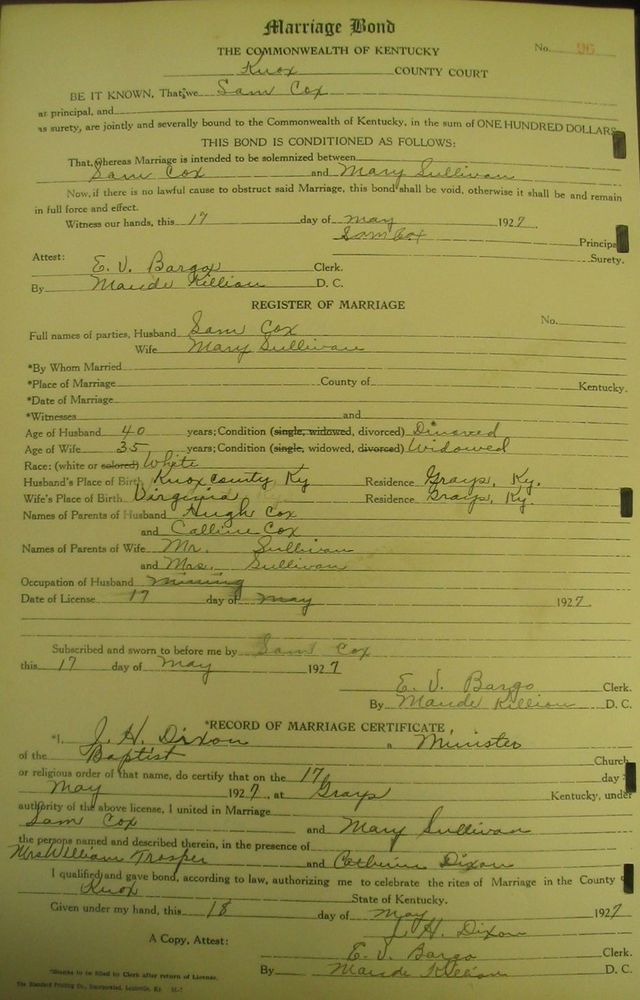 Marriage Bond
THE COMMONWEALTH OF KENTUCKY
No. 96
Knox COUNTY COURT
BE IT KNOWN, That we Sam Cox
as principal, and
as surety, are jointly and severally bound to the Commonwealth of Kentucky, in the sum of ONE HUNDRED DOLLARS
THIS BOND IS CONDITIONED AS FOLLOWS:
That, Whereas Marriage is intended to be solemnized between
Sam Cox and Mary Sullivan
Now, if there is no lawful cause to obstruct said Marriage, this bond shall be void, otherwise it shall be and remain
in full force and effect.
Witness our hands, this 17 day of May 1927
Sam Cox Principa
Surety.
Attest:
E. V. Bargo Clerk.
By Maude Killion D. C.
REGISTER OF MARRIAGE
No.
Full names of parties, Husband Sam Cox
Wife Mary Sullivan
*By Whom Married
*Place of Marriage County of Kentucky.
*Date of Marriage
*Witnesses and
Age of Husband 40 years; Condition (single, widowed, divorced) Divorced
Age of Wife 35 years; Condition (single, widowed, divorced) Widowed
Race: (white or colored) White
Husband's Place of Birth Knox County Ky Residence Grays, Ky.
Wife's Place of Birth Virginia Residence Grays, Ky.
Names of Parents of Husband Hugh Cox
and Calline Cox
Names of Parents of Wife Mr. Sullivan
and Mrs. Sullivan
Occupation of Husband Mining
Date of License 17 day of May 1927
Subscribed and sworn to before me by Sam Cox
this 17 day of May 1927
E. V. Bargo Clerk.
By Maude Killion D. C.
*RECORD OF MARRIAGE CERTIFICATE
*I, J. H. Dixon a Minister
of the Baptist Church
or religious order of that name, do certify that on the 17 day
May 1927 at Grays Kentucky, under
authority of the above license, I united in Marriage
Sam Cox and Mary Sullivan
the persons named and described therein, in the presence of
Mrs William Trosper and Catherine Dixon
I qualified and gave bond, according to law, authorizing me to celebrate the rites of Marriage in the County
Knox State of Kentucky.
Given under my hand, this 18 day of May 1927
J. H. Dixon
A Copy, Attest: E. V. Bargo Clerk.
By Maude Killion D. C.
*Blanks to be filled by Clerk after return of License.
The Standard Printing Co., Incorporated, Louisville, Ky